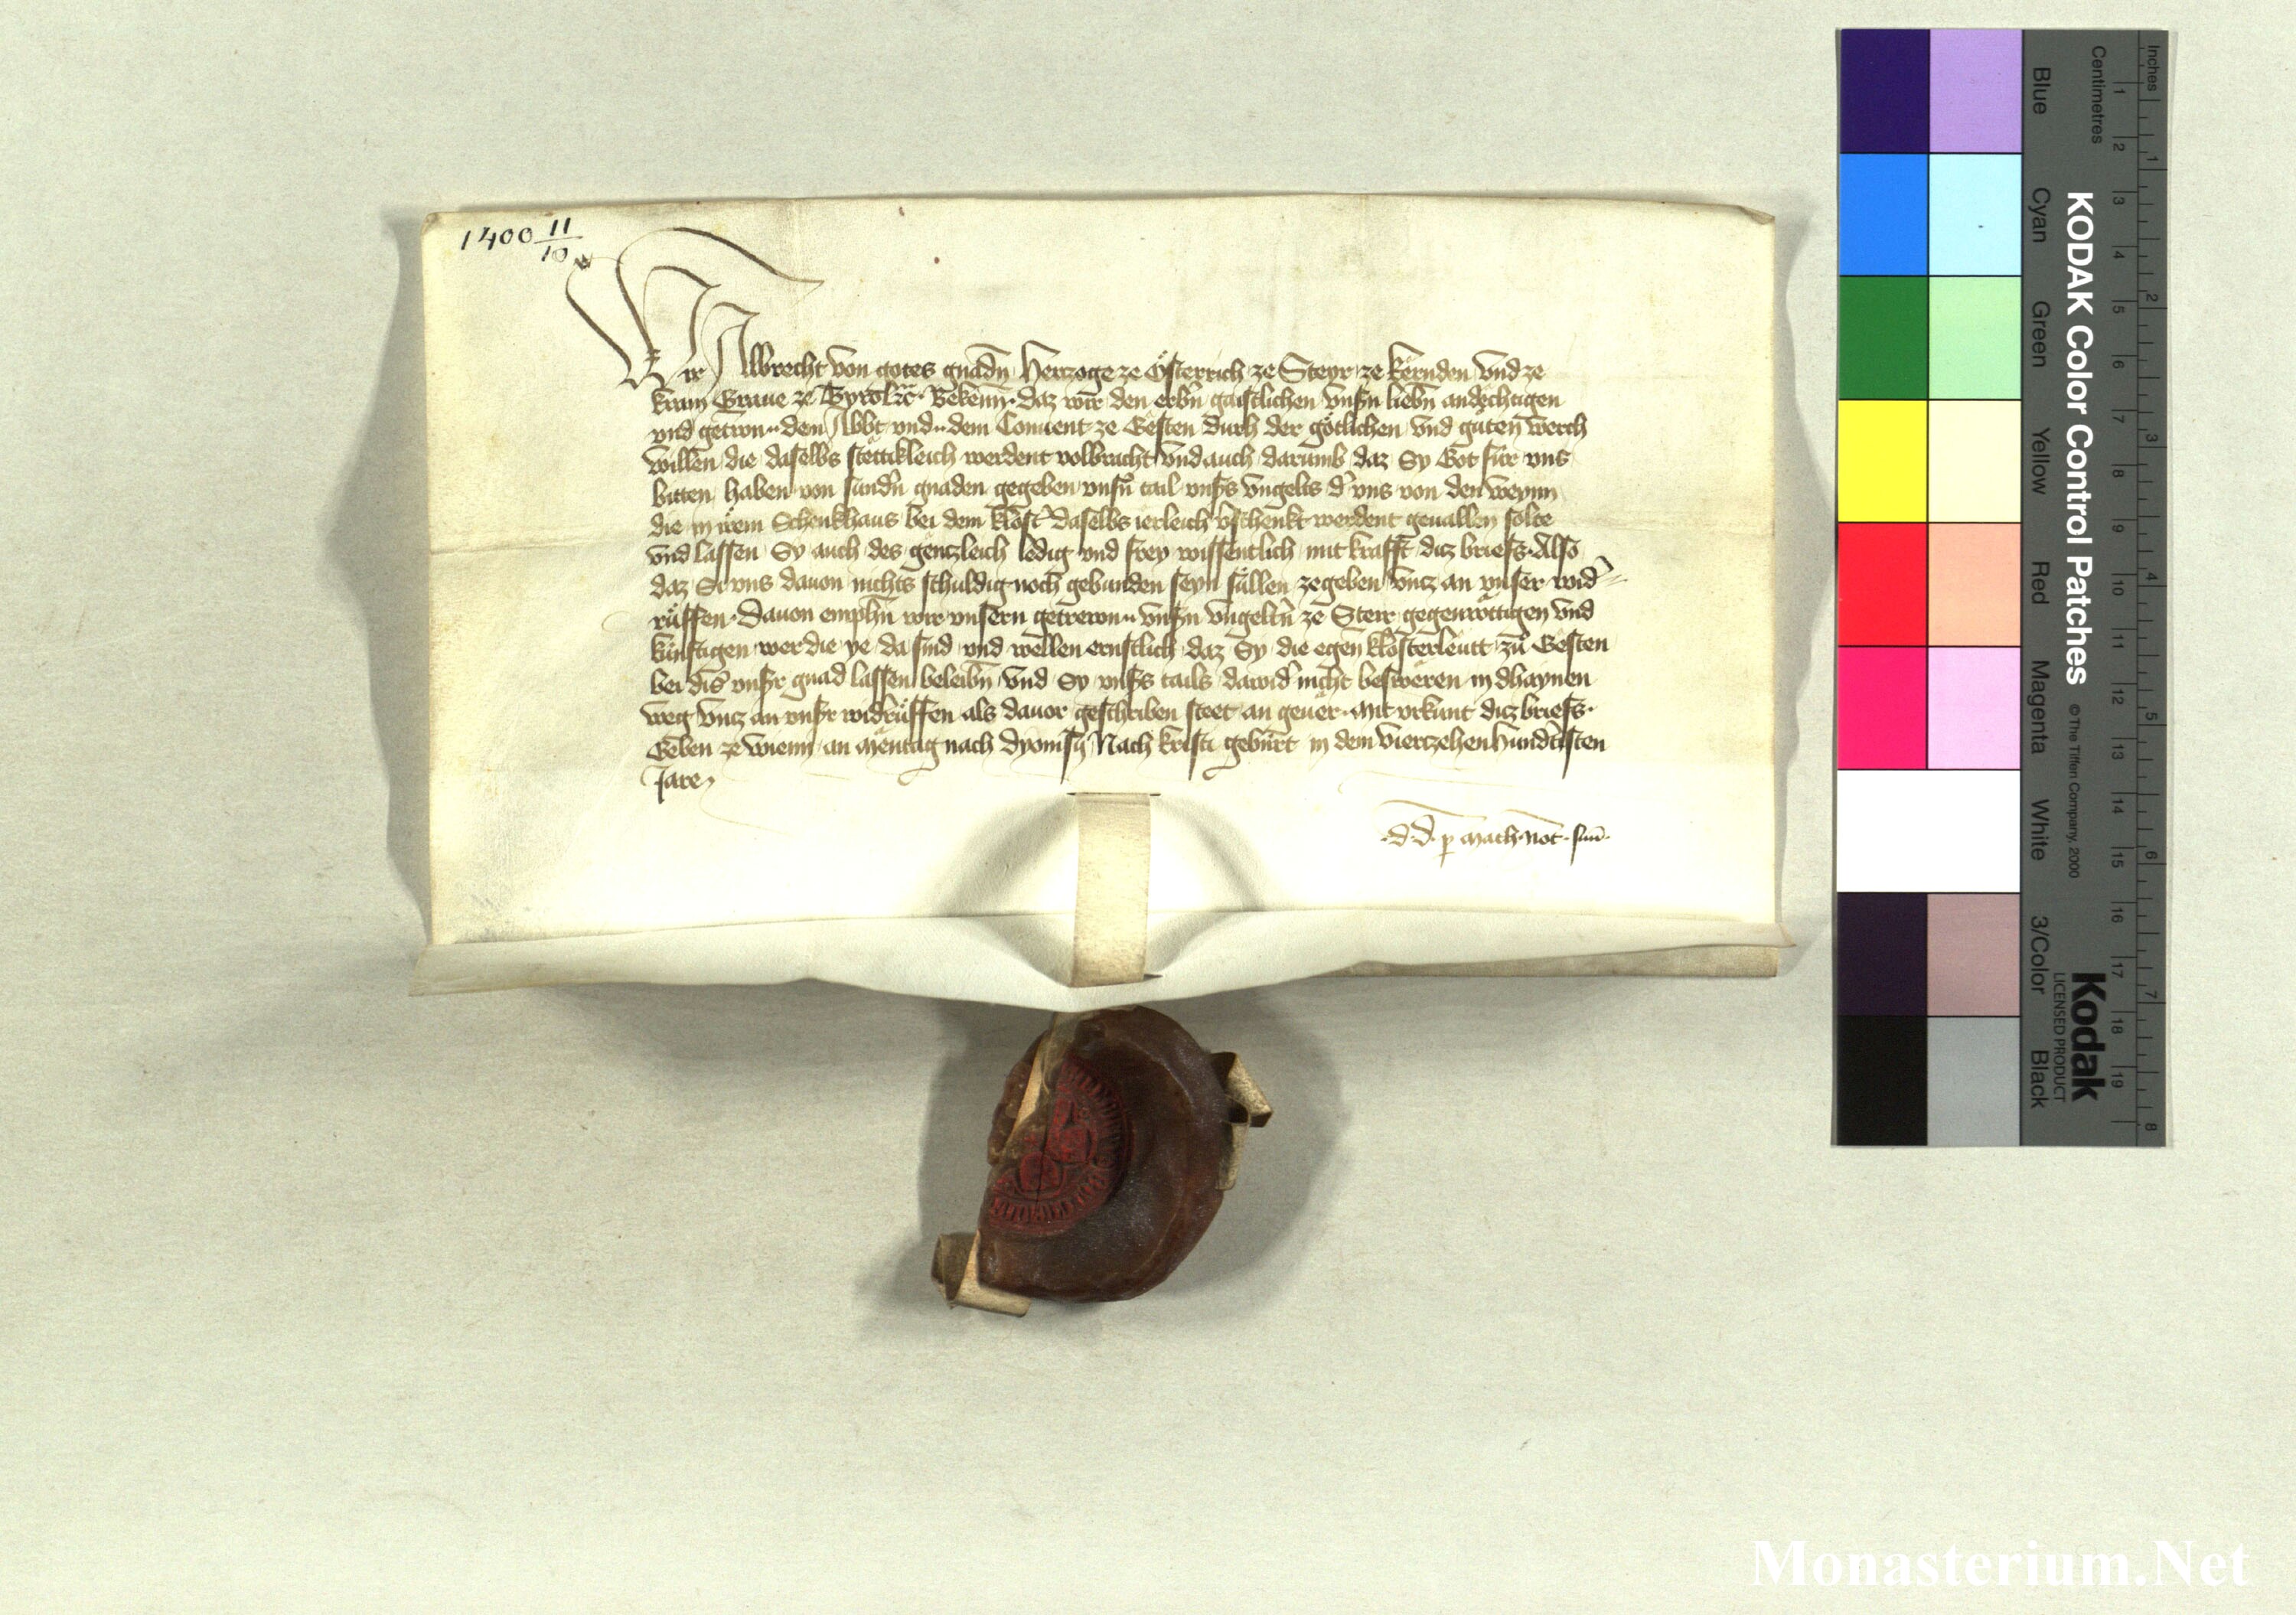 1400 11/10
Wir Albrecht von gotes gnadn Herczoge ze Österrich ze Steyr ze kernden vnd ze
krain Graue ze Tyrol ꝛc Bekenn daz wir den erbn gaistlichen vnsn liebn andechtigen
vnd getrwn dem Abbt vnd dem Conuent ze Gesten durh der götlichen vnd guten werch
willen die daselbs stettikleich werdent volbracht vnd auch darumb daz Sy Got für vns
bitten haben von sundn gnaden gegeben vnsn tail vnsrs vngelts d' vns von den weynn
die in irem Schenkhaus bei dem klost' daselbs ierleich v'schenkt werdent geuallen solte
vnd lassen Sy auch des genczleich ledig vnd frey wissentlich mit krafft dicz briefs Also
daz Si vns dauon nichts schuldig noch gebunden seyn süllen ze geben vncz an vnser wid'
rüffen Dauon emphln wir vnsern getrewn vnsn vngeltn ze Steir gegenwöttigen vnd
künftigen wer die ye da sind vnd wellen ernstlich daz Sy die egen klosterleutt zů Gesten
bei dis' vnsr gnad lassen beleibn vnd Sy vnsrs tails dawid' nicht beswêren in dhaynen
weg vncz an vnsr widrüffen als dauor geschriben steet an geuer Mit vrkunt dicz briefs
Geben ze wienn an Mentag nach dyonisy Nach kristi geburt in dem Vierczehenhundristen
Jare
d. d. p Mach. Not. sum
Inches
Centimetres
1 2 3 4 5 6 7 8 9 10 11 12 13 14 15 16 17 18 19
1 2 3 4 5 6 7 8
KODAK Color Control Patches © The Tiffen Company, 2000
Kodak
LICENSED PRODUCT
Blue Cyan Green Yellow Red Magenta White 3/Color Black
Monasterium.Net